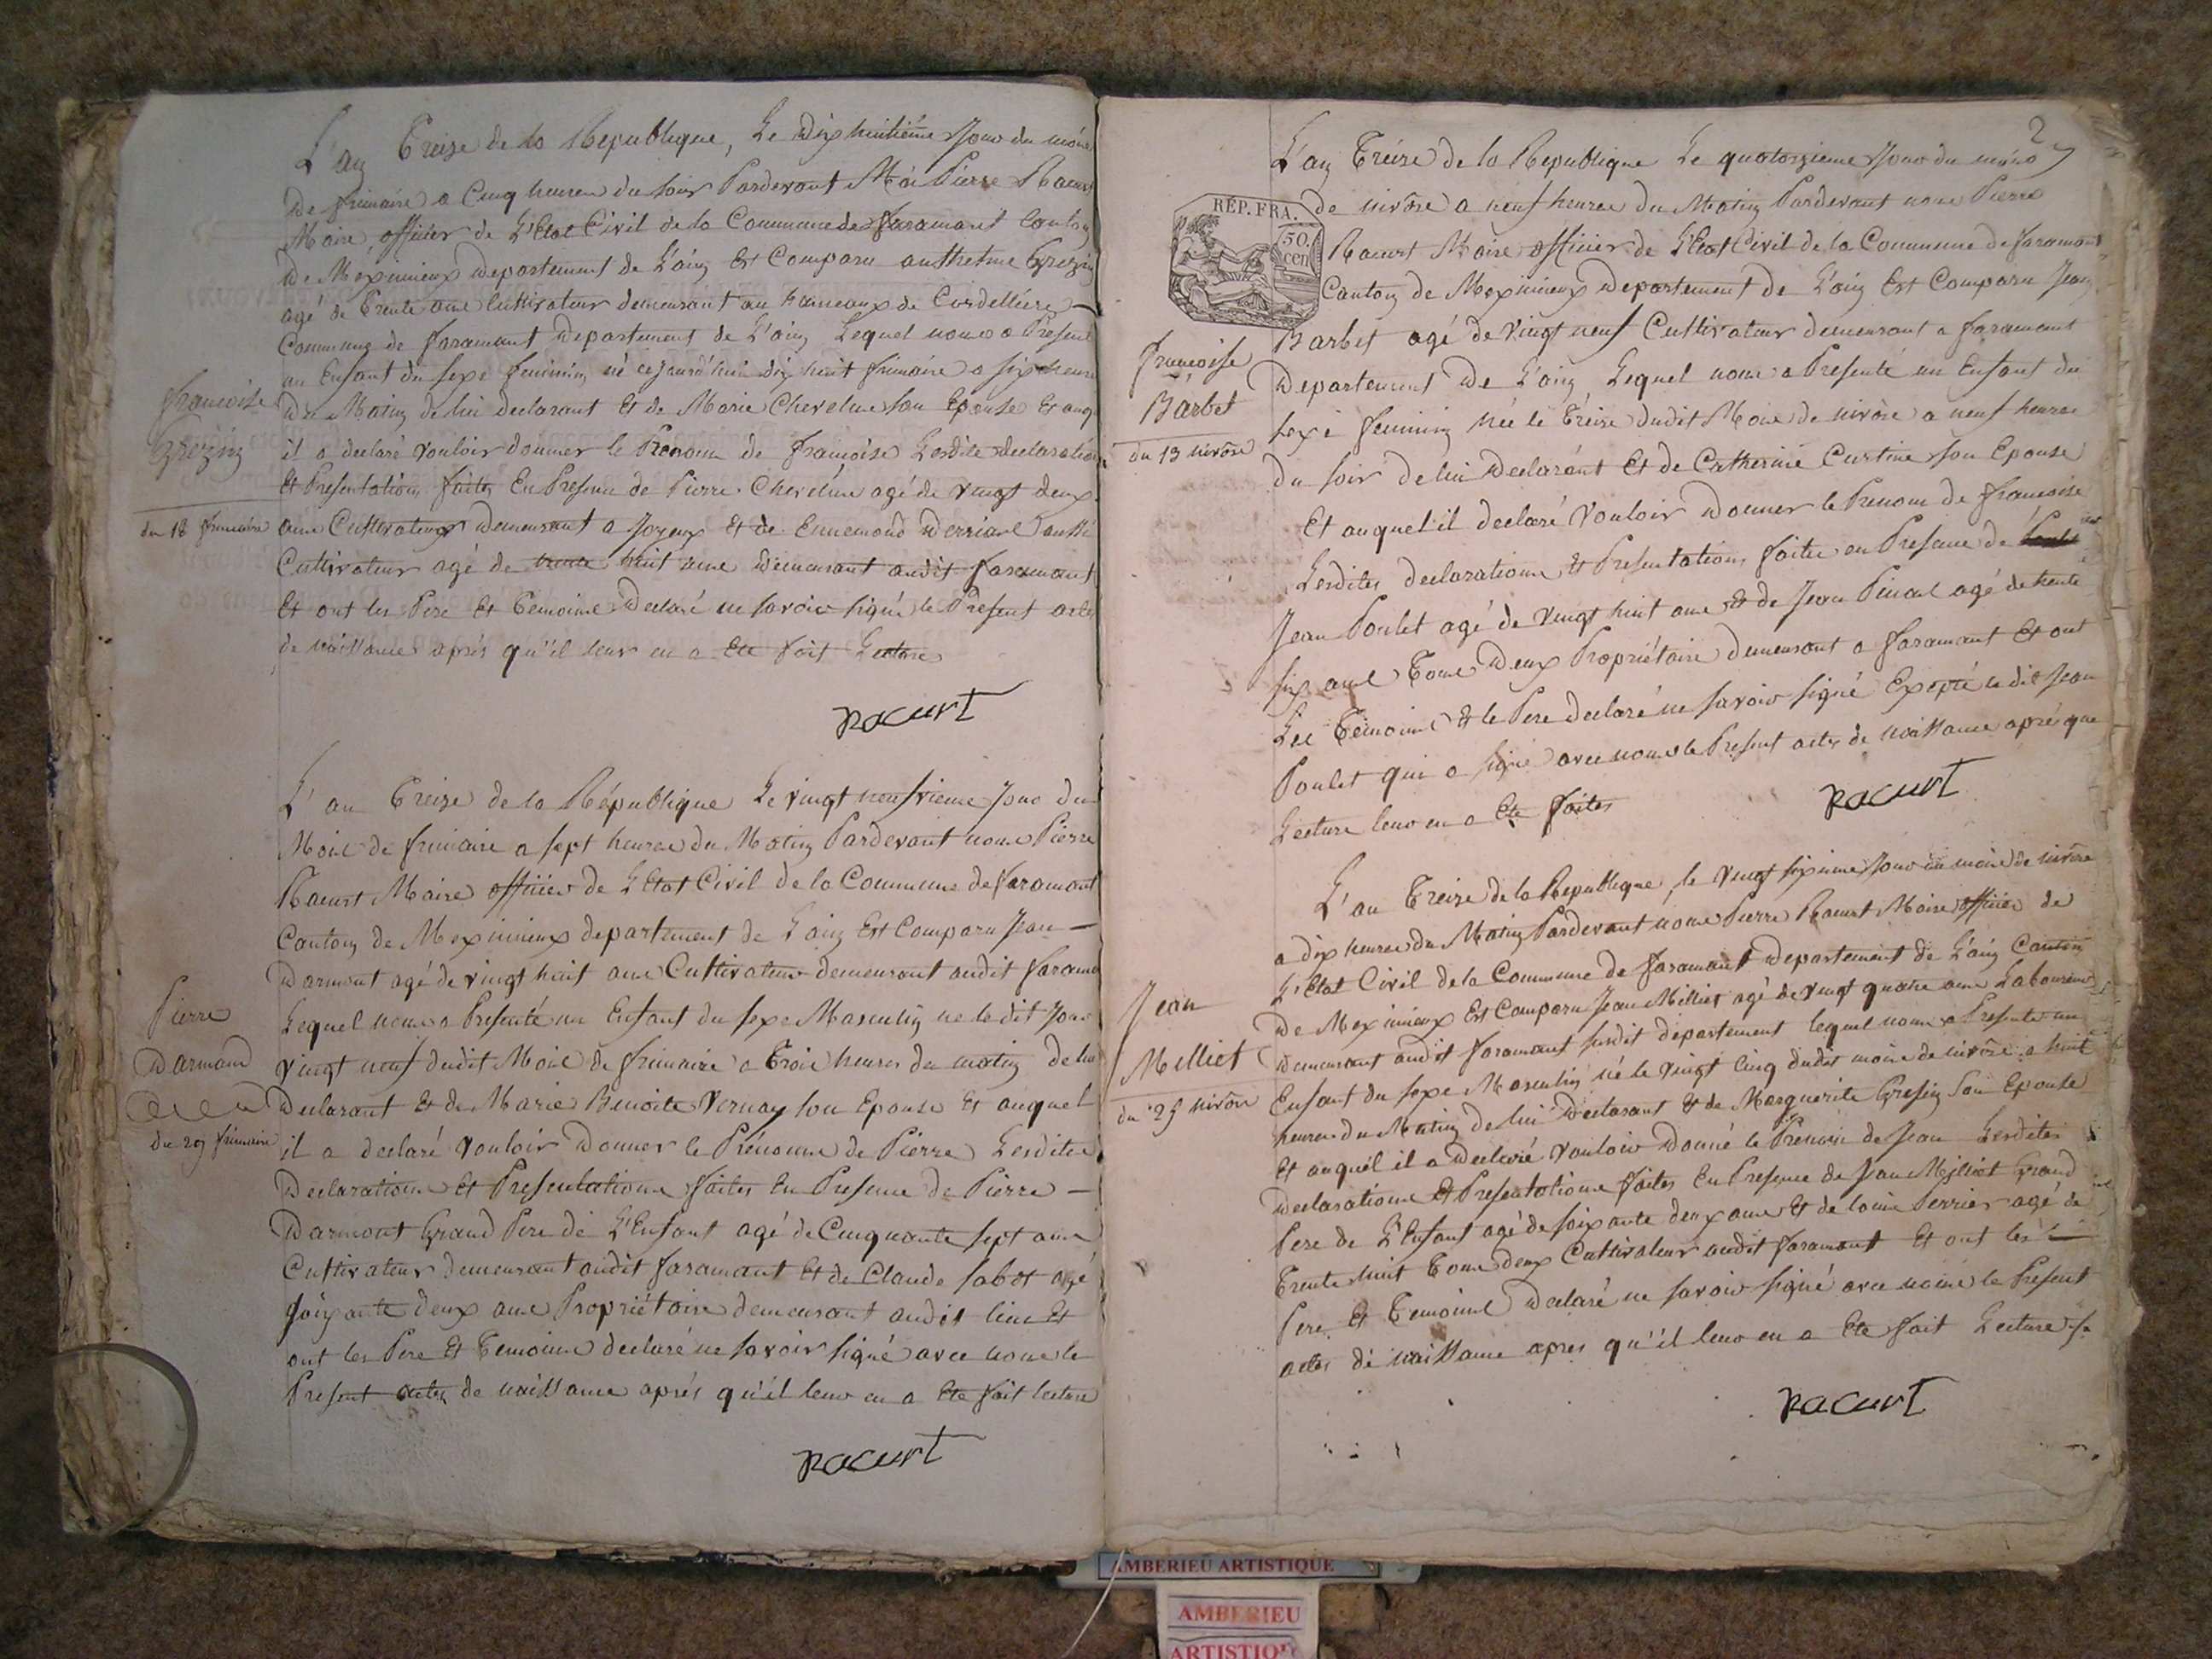 L'an Treize de la Republique, Le Dix huitiéme Jour du mois
De frimaire a Cinq heures du soir Pardevant Moi Pierre Racurt
Maire, officier de L'Etat Civil de la Commune de faramant Canton
De Méximieux Departement de L'ain Est Comparu anthelme Grezin
agé de Trente ans Cultivateur demeurant au hameaux de Cordelliere
Commune de faramant Departement de L'ain Lequel nous a Présenté
un Enfant du sexe feminin né cejourd'hui dix huit frimaire a six heures
Du Matin de lui declarant Et de Marie Chevelue son Epouse Et auq
il a declaré vouloir donner le Prenom de françoise Lesdite declaration
Et Presentations faites En Presence de Pierre Chevelue agé de vingt deux
ans Cultivateur Demeurant a Joyeux Et de Ennemond Derriat aussi
Cultivateur agé de trente huit ans Demeurant audit faramant
Et ont les Pere Et Temoins Declaré ne savoir signé le Present acte
de naissance aprés qu'il leur en a Ete fait Lecture
françoise
Grezin
du 18 frimaire
Racurt
L'an Treize de la République Le vingt neufvieme Jour du
Mois de frimaire a sept heures du Matin Pardevant nous Pierre
Racurt Maire officier de L'Etat Civil de la Commune de faramant
Canton de Meximieux departement de L'ain Est Comparu Jean
Darmont agé de vingt huit ans Cultivateur demeurant audit faramant
Lequel nous a Presenté un Enfant du sexe Masculin né le dit Jour
vingt neuf dudit Mois de frimaire a Trois heures du matin de lui
Declarant Et de Marie Benoite Vernay son Epouse Et auquel
il a declaré vouloir Donner le Prénomme de Pierre Lesdites
Declarations Et Presentations faites En Presence de Pierre
Darmont Grand Pere de L'Enfant agé de Cinquante sept ans
Cultivateur demeurant audit faramant Et de Claude sabot agé
soixante deux ans Propriétaire demeurant audit lieu Et
ont les Pere Et Temoins declaré ne savoir signé avec nous le
Present actes de naissance aprés qu'il leur en a Ete fait lecture
Pierre
Darmand
du 29 frimaire
Racurt
2
L'an Treize de la Republique Le quatorzieme Jour du mois
de nivôse a neuf heures du Matin Pardevant nous Pierre
Racurt Maire officier de L'Etat Civil de la Commune de faramant
Canton de Meximieux Departement de L'ain Est Comparu Jean
Barbet agé de vingt neuf Cultivateur demeurant a faramant
Departement De L'ain Lequel nous a Presenté un Enfant du
sexe feminin née le Treize dudit Mois de nivôse a neuf heures
du soir de lui Declarant Et de Catherine Curtine son Epouse
Et auquel il declaré vouloir Donner le Prenom de francoise
Lesdites declarations Et Presentations faites en Presence de
Jean Poulet agé de vingt huit ans Et de Jean Pinal agé de trente
six ans Tous Deux Propriétaire demeurant a faramant Et ont
Les Temoins Et le Pere declaré ne savoir signé Expté le dit Jean
Poulet qui a signé avec nous le Present actes de naissance aprés que
Lecture leur en a Ete faites
RÉP. FRA.
50.
cen
francoise
Barbet
du 13 nivôse
Racurt
L'an Treize de la Republique, le vingt sixieme Jour du mois de nivôse
a dix heures du Matin Pardevant nous Pierre Racurt Maire officier de
L'Etat Civil de la Commune de faramant Departement de L'ain Canton
De Meximieux Est Comparu Jean Milliet agé de vingt quatre ans Laboureur
Demeurant audit faramant susdit departement lequel nous a Presenté un
Enfant du sexe Masculin né le vingt Cinq dudit mois de nivôse a huit
heures du Matin de lui Declarant Et de Marguerite Gresin son Epouse
Et auquél il a Declaré vouloir Donné le Prénom de Jean Lesdites
Declarations Et Presentations faites En Presence de Jean Milliet Grand
Pere de L'Enfant agé de soixante deux ans Et de louis Perrier agé de
Trente huit Tous deux Cultivateur audit faramant Et ont les
Pere Et Temoins Declaré ne savoir signé avec nous le Present
actes de naissance apres qu'il leur en a Ete fait Lecture
Jean
Milliet
du 25 nivôse
Racurt
AMBERIEU ARTISTIQUE
AMBERIEU
ARTISTIQ